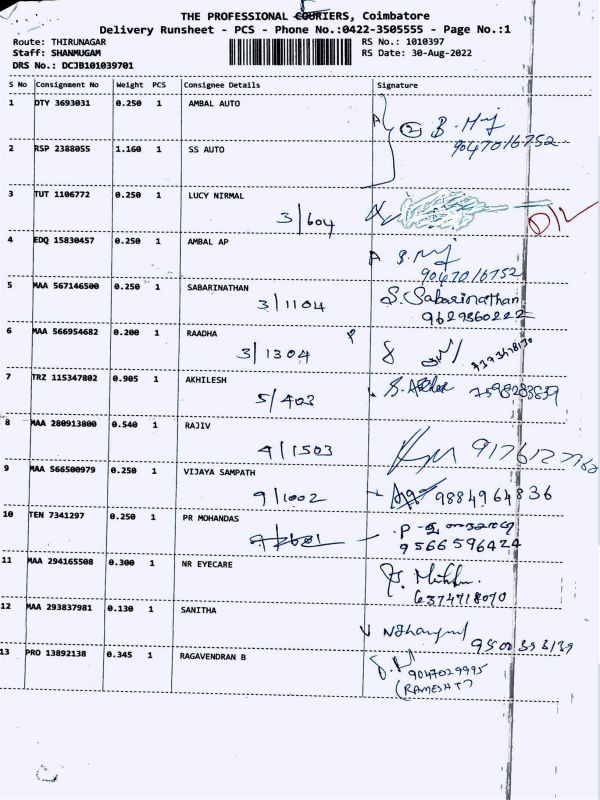 THE PROFESSIONAL COURIERS, Coimbatore
Delivery Runsheet - PCS - Phone No.:0422-3505555 - Page No.:1
Route: THIRUNAGAR RS No.: 1010397
Staff: SHANMUGAM RS Date: 30-Aug-2022
DRS No.: DCJB101039701
S No Consignment No Weight PCS Consignee Details Signature
1 DTY 3693031 0.250 1 AMBAL AUTO
2 B.
9047016752
2 RSP 2388055 1.160 1 SS AUTO
3 TUT 1106772 0.250 1 LUCY NIRMAL
3/604 D/L
4 EDQ 15830457 0.250 1 AMBAL AP
9047016752
5 MAA 567146500 0.250 1 SABARINATHAN S. Sabarinathan
3/1104 9629860222
6 MAA 566954682 0.200 1 RAADHA P
3/1304
7 TRZ 115347802 0.905 1 AKHILESH
5/403
8 MAA 280913800 0.540 1 RAJIV
4/1503
9 MAA 566500979 0.250 1 VIJAYA SAMPATH
9/1002 9884964836
10 TEN 7341297 0.250 1 PR MOHANDAS
9566596424
11 MAA 294165508 0.300 1 NR EYECARE
6374718070
12 MAA 293837981 0.130 1 SANITHA
13 PRO 13892138 0.345 1 RAGAVENDRAN B
9047029995
(RAMESH T)